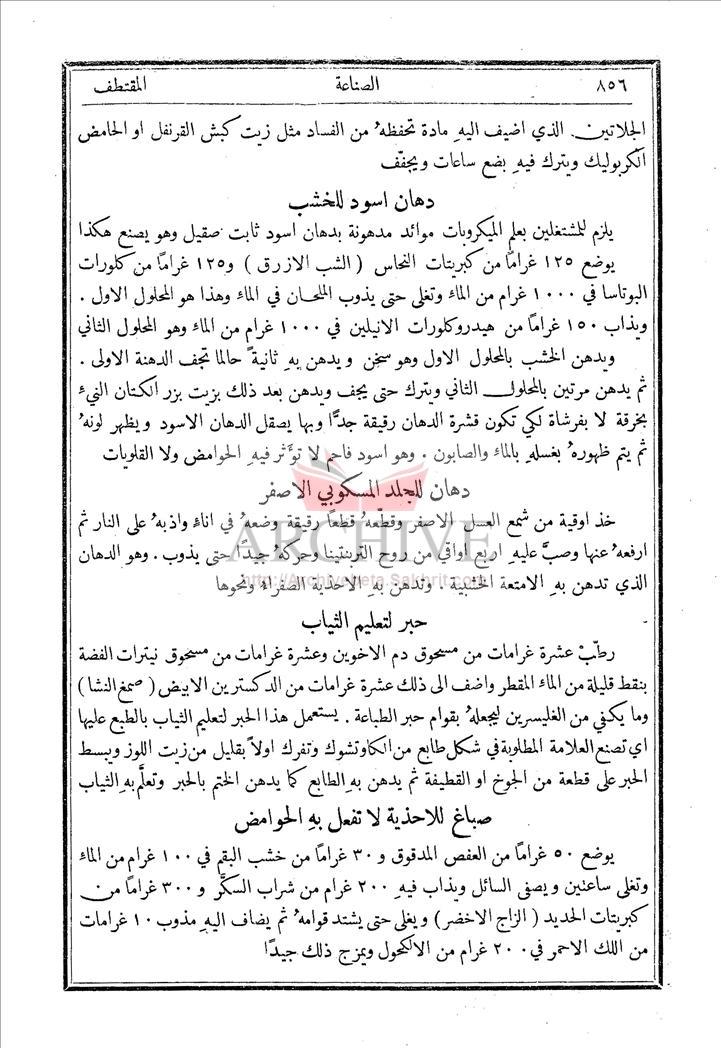 ٨٥٦ الصناعة المقتطف
الجلاتين. الذي اضيف اليهِ مادة تحفظهُ من الفساد مثل زيت كبش القرنفل او الحامض
الكربوليك ويترك فيهِ بضع ساعات ويجفّف
دهان اسود للخشب
يلزم للمشتغلين بعلم الميكروبات موائد مدهونة بدهان اسود ثابت صقيل وهو يصنع هكذا
يوضع ١٢٥ غرامًا من كبريتات النحاس ( الشب الازرق ) و١٢٥ غرامًا من كلورات
البوتاسا في ١٠٠٠ غرام من الماءِ وتغلى حتى يذوب الملحان في الماءِ وهذا هو المحلول الاول .
ويذاب ١٥٠ غرامًا من هيدروكلورات الانيلين في ١٠٠٠ غرام من الماءِ وهو المحلول الثاني
ويدهن الخشب بالمحلول الاول وهو سخن ويدهن بهِ ثانيةً حالما تجف الدهنة الاولى .
ثم يدهن مرتين بالمحلول الثاني ويترك حتى يجف ويدهن بعد ذلك بزيت بزر الكتان النيءِ
بخرقة لا بفرشاة لكي تكون قشرة الدهان رقيقة جدًّا وبها يصقل الدهان الاسود ويظهر لونهُ
ثم يتم ظهورهُ بغسلهِ بالماءِ والصابون . وهو اسود فاحم لا تؤَثر فيهِ الحوامض ولا القلويات
دهان للجلد المسكوبي الاصفر
خذ اوقية من شمع العسل الاصفر وقطّعهُ قطعًا رقيقة وضعهُ في اناءٍ واذبهُ على النار ثم
ارفعهُ عنها وصبَّ عليهِ اربع اواقي من روح التربنتينا وحركهُ جيدًا حتى يذوب . وهو الدهان
الذي تدهن بهِ الامتعة الخشبية . وتدهن بهِ الاحذية الصفراءُ ونحوها
ARCHIVE
http://Archivebeta.Sakhrit.com
حبر لتعليم الثياب
رطّبْ عشرة غرامات من مسحوق دم الاخوين وعشرة غرامات من مسحوق نيترات الفضة
بنقط قليلة من الماءِ المقطر واضف الى ذلك عشرة غرامات من الدكسترين الابيض ( صمغ النشا )
وما يكفي من الغليسرين ليجعلهُ بقوام حبر الطباعة . يستعمل هذا الحبر لتعليم الثياب بالطبع عليها
اي تصنع العلامة المطلوبة في شكل طابع من الكاوتشوك وتفرك اولاً بقليل من زيت اللوز ويبسط
الحبر على قطعة من الجوخ او القطيفة ثم يدهن بهِ الطابع كما يدهن الختم بالحبر وتعلَّم بهِ الثياب
صباغ للاحذية لا تفعل بهِ الحوامض
يوضع ٥٠ غرامًا من العفص المدقوق و ٣٠ غرامًا من خشب البقم في ١٠٠ غرام من الماءِ
وتغلى ساعتين ويصفى السائل ويذاب فيهِ ٢٠٠ غرام من شراب السكَّر و ٣٠٠ غرامًا من
كبريتات الحديد ( الزاج الاخضر ) ويغلى حتى يشتد قوامهُ ثم يضاف اليهِ مذوب ١٠ غرامات
من اللك الاحمر في ٢٠٠ غرام من الالكحول ويمزج ذلك جيدًا